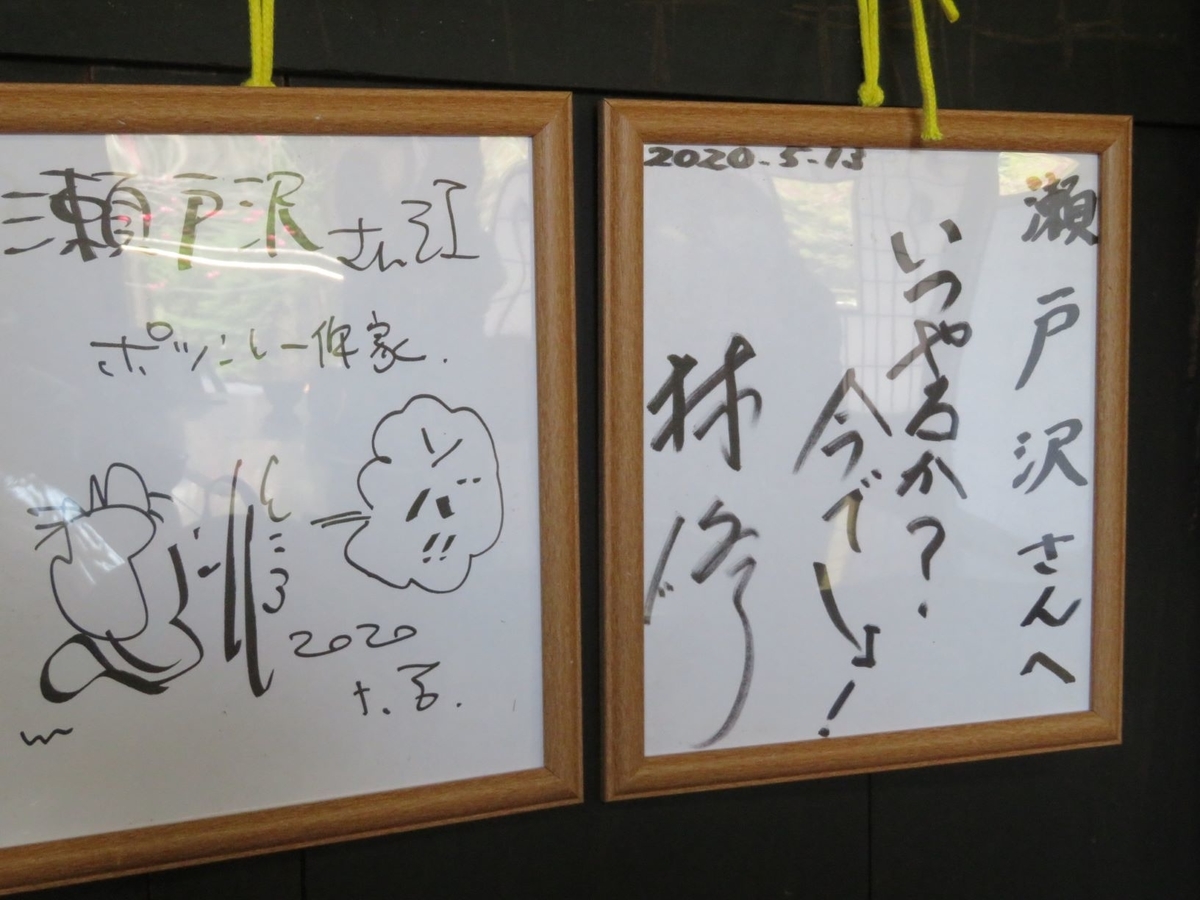 瀬戸沢さん江
ポツンと一軒家.
ソ
バ
!!
ところ
2020
2020-5-13
瀬戸沢さんへ
いつやるか?
今でしょ!
林修